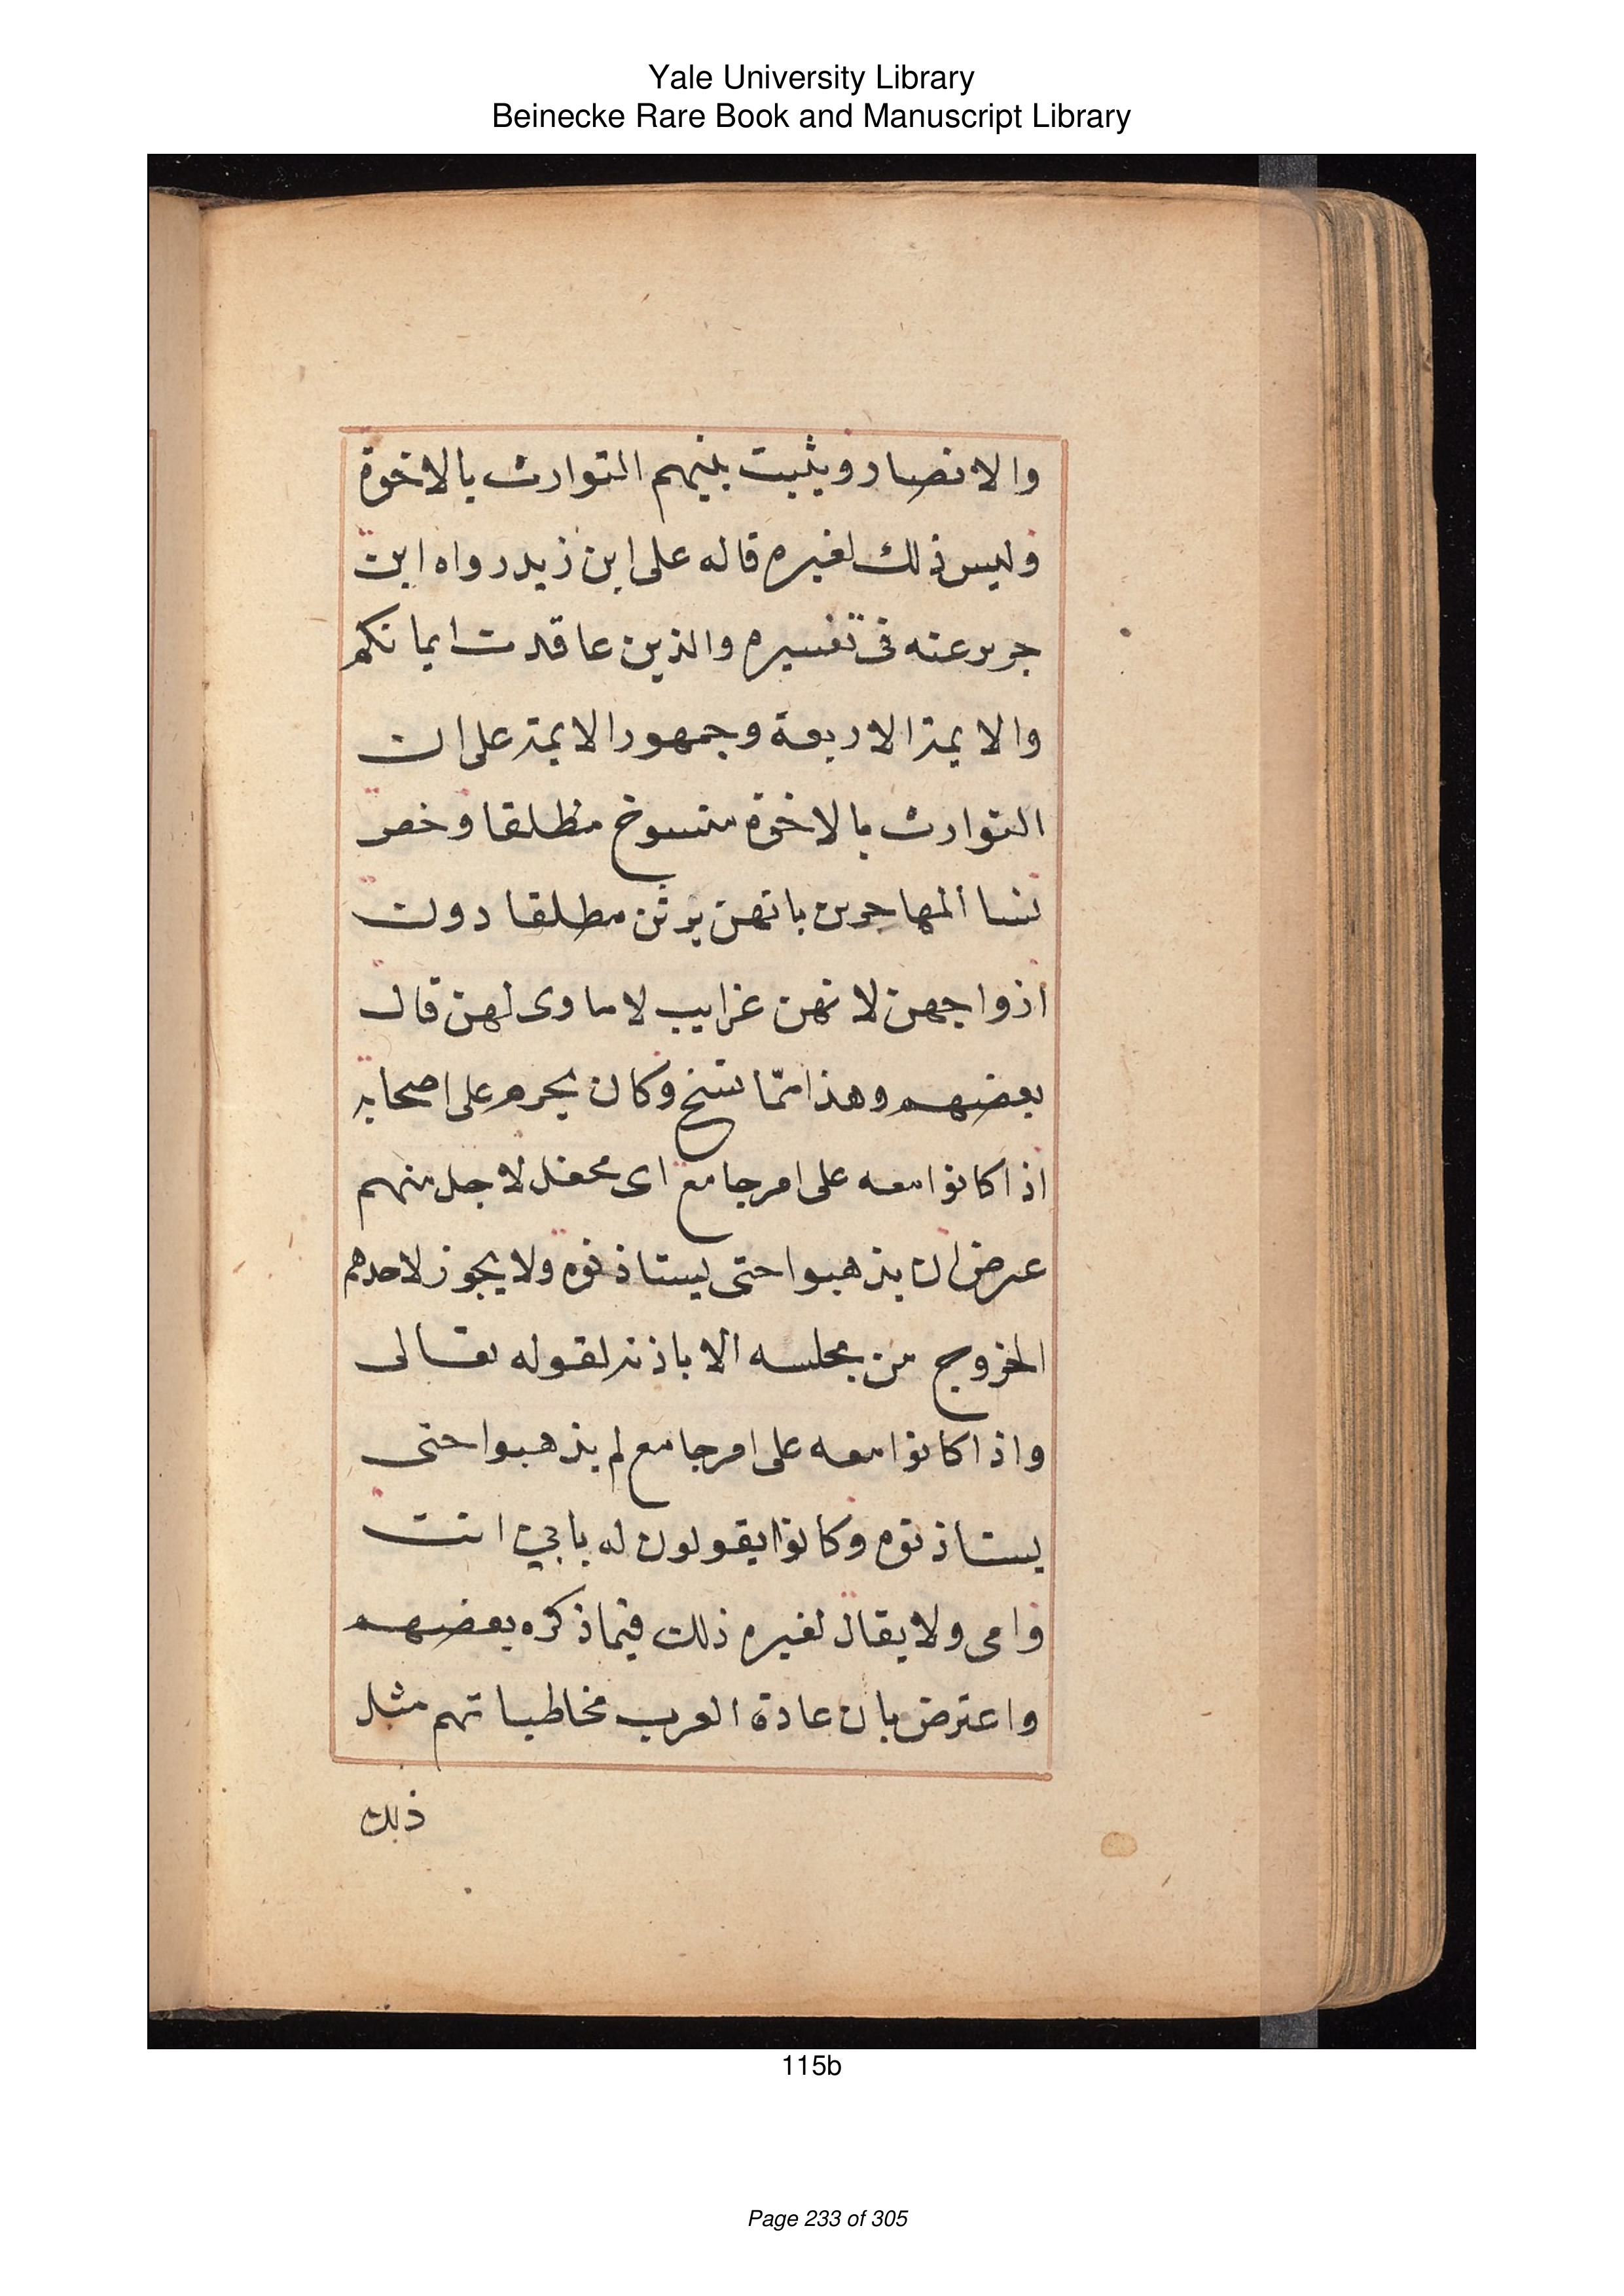 Yale University Library
Beinecke Rare Book and Manuscript Library
والانصار ويثبت بينهم التوارث بالاخوة
وليس ذلك لغيره قاله على ابن زيد رواه ابن
جرير عنه فى تفسيره والذين عاقدت ايمانكم
والايمة الاربعة وجمهور الايمة على ان
التوارث بالاخوة منسوخ مطلقا وخص
نسا المهاجرين بانهن يرثن مطلقا دون
ازواجهن لانهن غرايب لا ماوى لهن قال
بعضهم وهذا ممّا نسخ وكان يحرم على اصحابه
اذا كانوا معه على امر جامع اى محفل لاجل منهم
عرض ان يذهبوا حتى يستاذنوه ولا يجوز لاحدهم
الخروج من مجلسه الا باذنه لقوله تعالى
واذا كانوا معه على امر جامع لم يذهبوا حتى
يستاذنوه وكانوا يقولون له بابي انت
وامى ولا يقال لغيره ذلك فيما ذكره بعضهم
واعترض بان عادة العرب مخاطباتهم مثل
ذلك
115b
Page 233 of 305